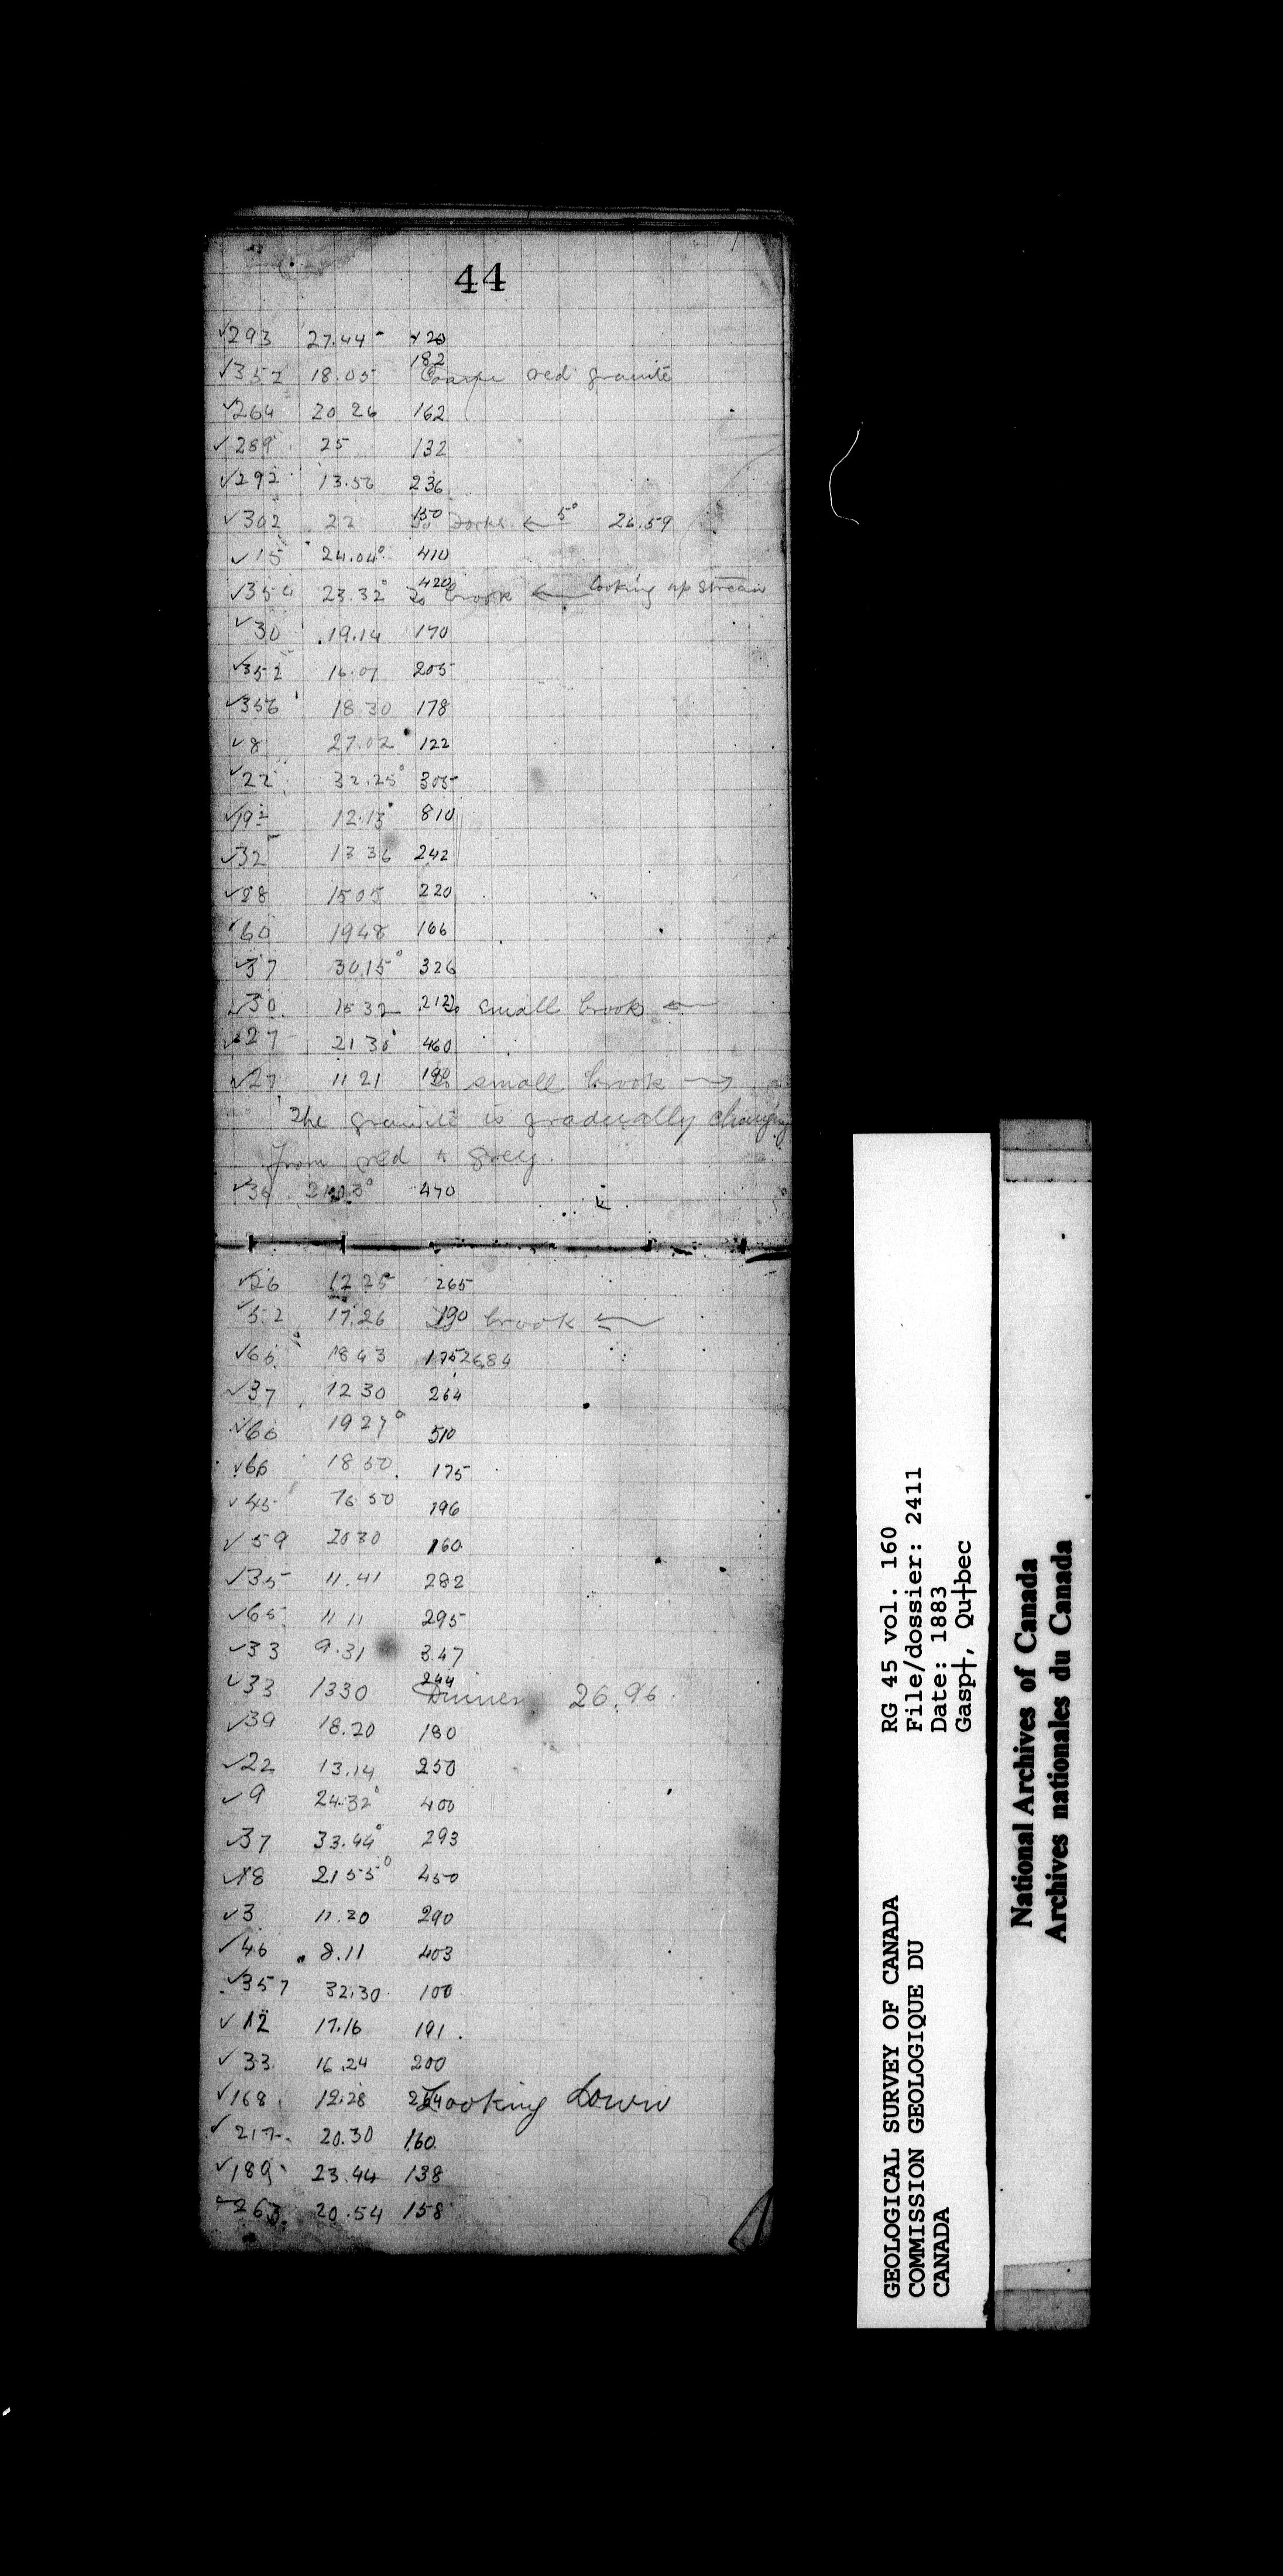 44
✓293 27.44 120
✓352 18.05 182 Coarse red granite
✓264 20 26 162
✓289 25 132
✓292 13.56 236
✓302 22 150 To Forks ← 5° 26.59
✓15 24.04° 410
✓350 23.32° 420 To brook ← looking up Stream
✓30 19.14 170
✓352 16.07 205
✓356 18 30 178
✓8 27.02 122
✓22 32.25° 305
✓19 12.13° 810
✓32 13 36 242
✓28 15 05 220
✓60 19 48 166
✓37 30.15° 326
✓30 15 32 212 To small brook ←
✓27 21 30° 460
✓27 11 21 190 To small brook →
The granite is gradually changing
from red to grey.
✓34 21.03° 470
✓26 12 25 265
✓52 17.26 190 To brook ←
✓66 18 43 175 26.84
✓37 12 30 264
✓66 19 27° 510
✓66 18 50 175
✓45 16 50 196
✓59 20 30 160
✓35 11.41 282
✓65 11 11 295
✓33 9.31 347
✓33 13 30 244 Dinner 26.96
✓39 18.20 180
✓22 13.14 250
✓9 24.32° 400
✓37 33.44° 293
✓18 21 55° 450
✓3 11.20 290
✓46 8.11 403
✓357 32.30 100
✓12 17.16 191
✓33 16.24 200
✓168 12.28 264 Looking Down
✓217 20.30 160
✓189 23.44 138
✓263 20.54 158
GEOLOGICAL SURVEY OF CANADA RG 45 vol. 160
COMMISSION GEOLOGIQUE DU File/dossier: 2411
CANADA Date: 1883
Gasp†, Qu†bec
National Archives of Canada
Archives nationales du Canada